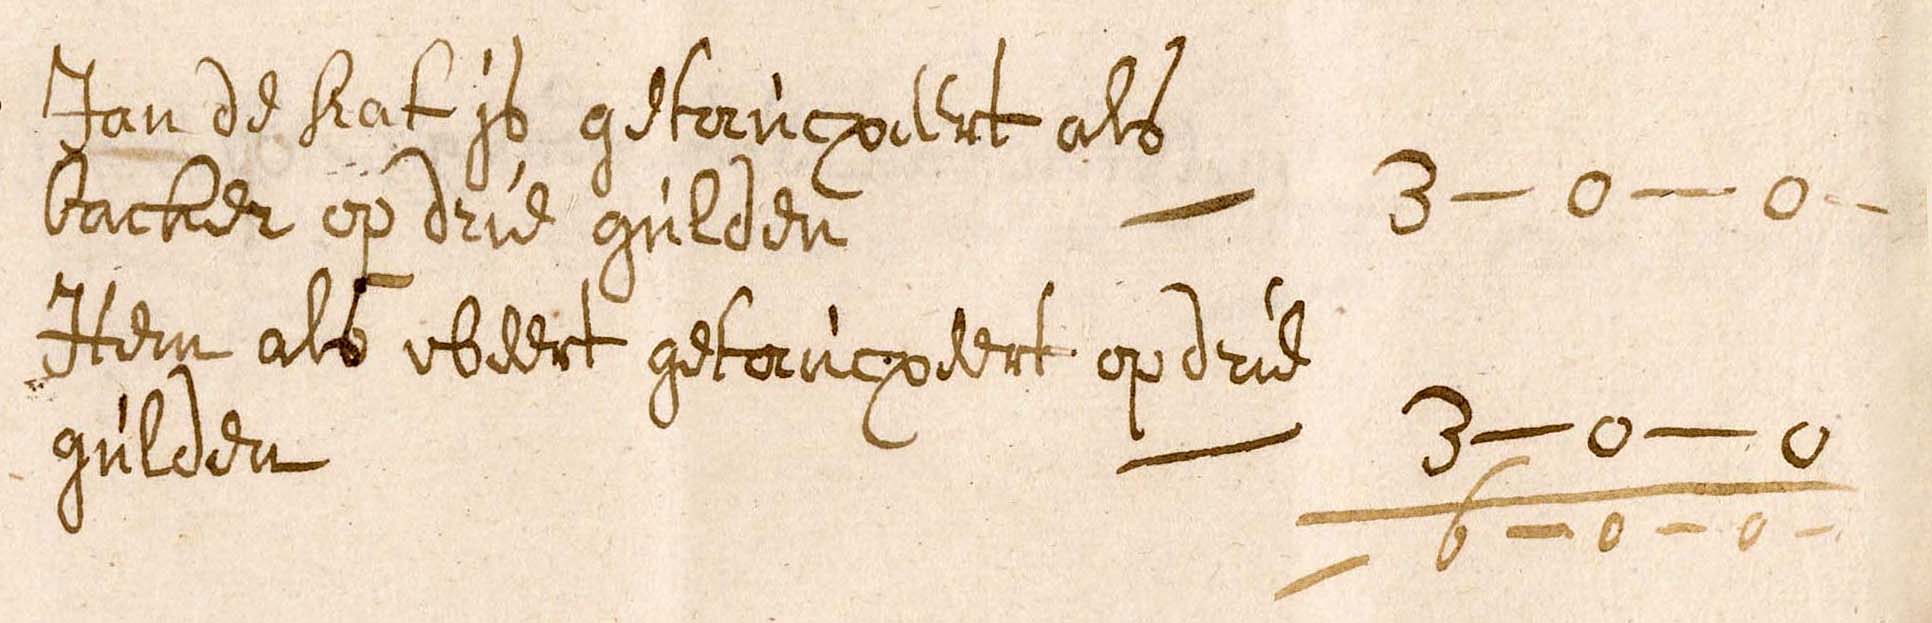 Jan de kat js getauxeert als
backer op drie gulden — 3 — 0 — 0 –
Item als weert getauxeert op drie
gulden — 3 — 0 — 0
6 — 0 — 0 –